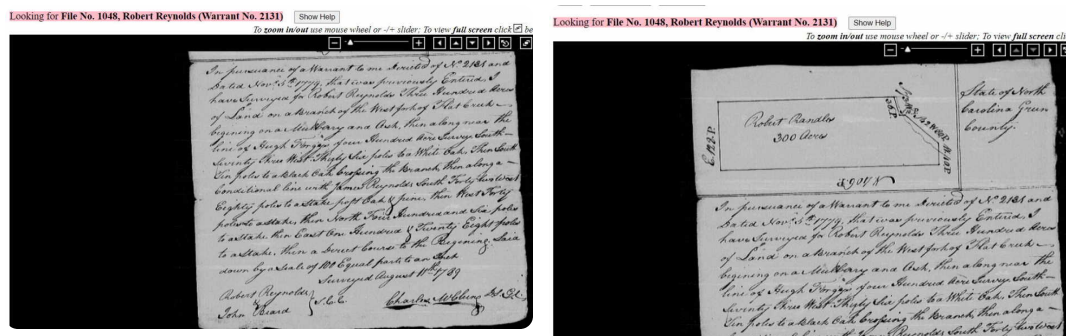 Looking for File No. 1048, Robert Reynolds (Warrant No. 2131)
Show Help
To zoom in/out use mouse wheel or -/+ slider; To view full screen click be
In pursuance of a Warrant to me directed of No 2131 and
Dated Novr 5th 1779, that was previously Entered. I
have Surveyed for Robert Reynolds Three Hundred Acres
of Land on a Branch of the West fork of Flat Creek
begining on a Mulberry and Ash, then along near the
line of Hugh four Hundred there Survey South
Seventy three West Thirty Six poles to a White Oak, then South
Ten poles to a black Oak Crossing the Branch, then along a
Conditional line with James Reynolds South Forty two West
Eighty poles to a Stake, post Oak & pine, then West Forty
poles to a stake, then North Four Hundred and Six poles
to a stake, then East One Hundred & Twenty Eight poles
to a Stake, then a Direct Course to the Begening, Laid
down by a Scale of 100 Equal parts to an Inch
Surveyed August 11th 1789
Robert Reynolds
John Beard
S.C.C.
Charles McClung
Looking for File No. 1048, Robert Reynolds (Warrant No. 2131)
Show Help
To zoom in/out use mouse wheel or -/+ slider; To view full screen cli
Robert Randles
300 Acres
E. 128. P.
N 406 P.
State of North
Carolina Green
County.
In pursuance of a Warrant to me directed of No 2131 and
Dated Novr 5th 1779, that was previously Entered. I
have Surveyed for Robert Reynolds Three Hundred Acres
of Land on a Branch of the West fork of Flat Creek
begining on a Mulberry and Ash, then along near the
line of Hugh four Hundred there Survey South
Seventy three West Thirty Six poles to a White Oak, then South
Ten poles to a black Oak Crossing the Branch, then along a